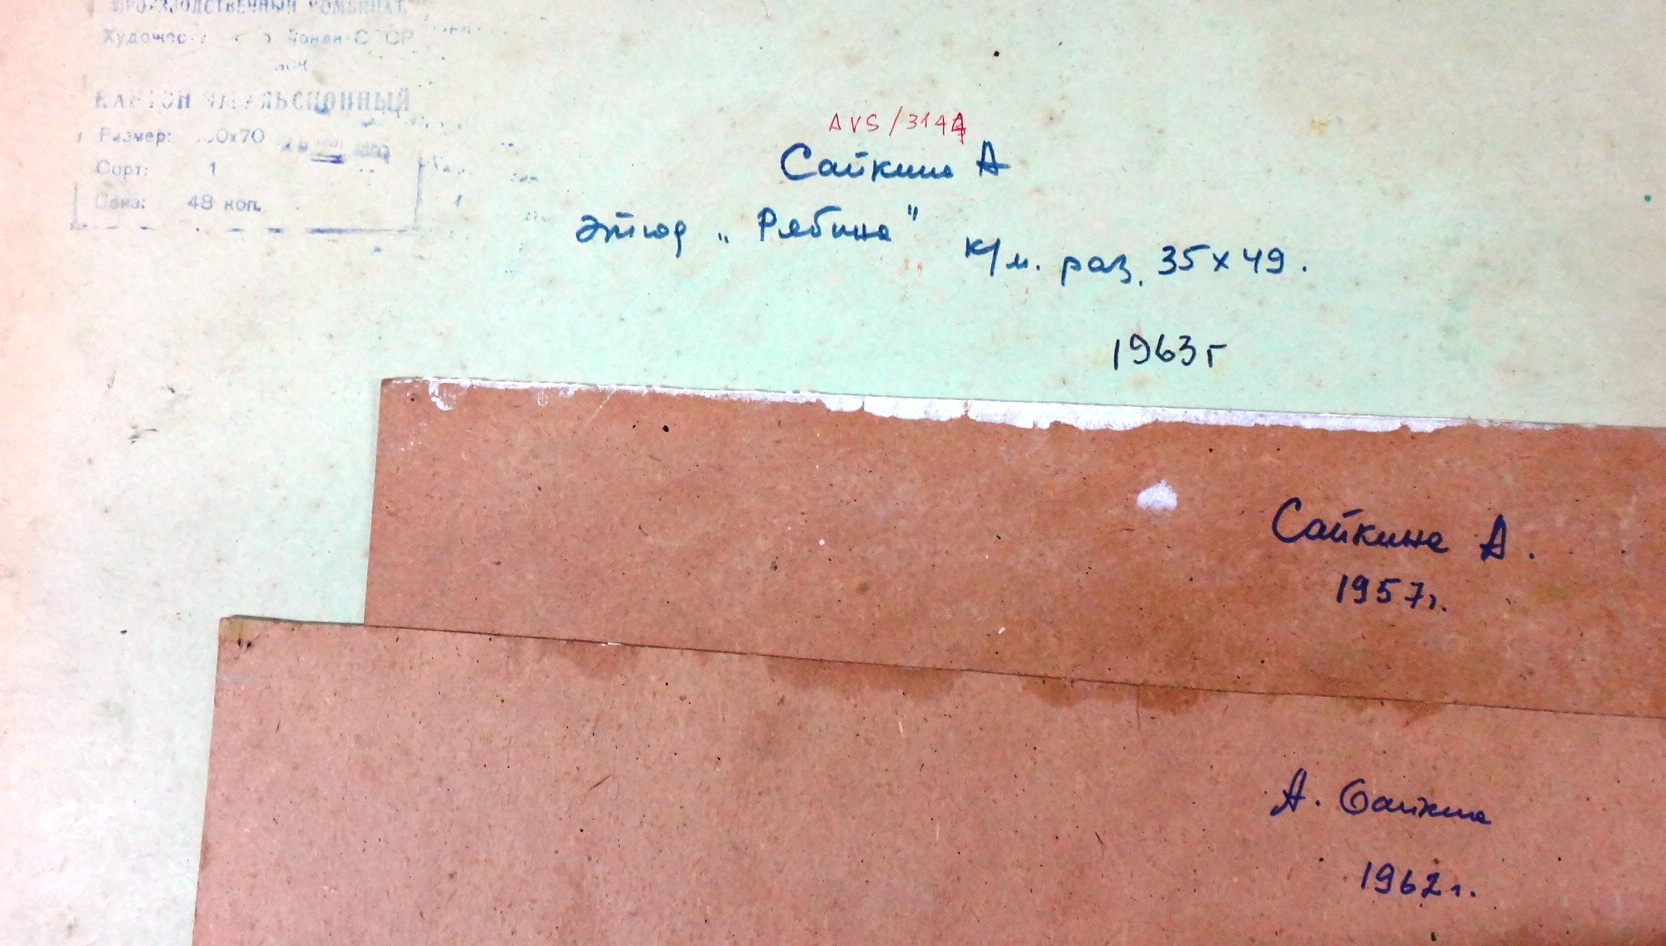 ПРОИЗВОДСТВЕННЫЙ КОМБИНАТ
СССР
КАРТОН ЭМУЛЬСИОННЫЙ
Размер: 70
Сорт: 1
Цена: 48 коп.
AVS/3144
Сайкина А
Этюд „Рябина" к/м. раз. 35х49.
1963г
Сайкина А.
1957г.
А. Сайкина
1962г.